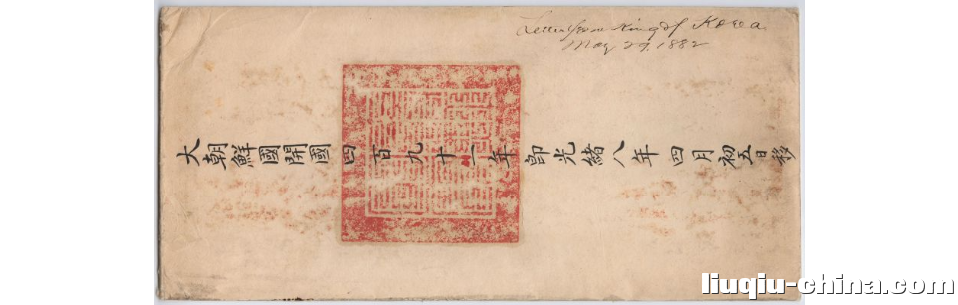 Letter from King of Korea
May 27, 1882
大朝鮮國開國四百九十一年即光緒八年四月初五日移
liuqiu-china.com